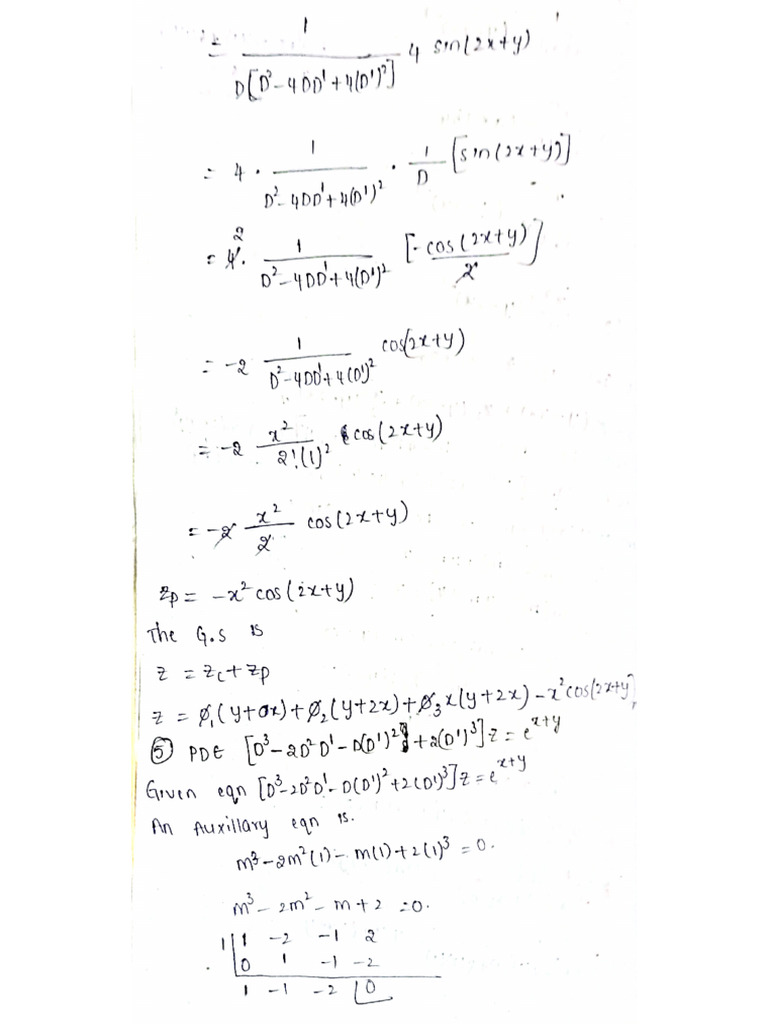 = 1 / D[D² - 4DD' + 4(D')²] 4 sin(2x+y)
= 4 · 1 / D² - 4DD' + 4(D')² · 1/D [sin(2x+y)]
= 4² · 1 / D² - 4DD' + 4(D')² [- cos(2x+y) / 2]
= -2 1 / D² - 4DD' + 4(D')² cos(2x+y)
= -2 x² / 2!(1)² cos(2x+y)
= -2 x² / 2 cos(2x+y)
Zp = -x² cos(2x+y)
The G.S is
z = zc + zp
z = ø₁(y+0x) + ø₂(y+2x) + ø₃x(y+2x) - x² cos(2x+y)
⑤ PDE [D³ - 2D²D' - D(D')² + 2(D')³]z = e^x+y
Given eqn [D³ - 2D²D' - D(D')² + 2(D')³]z = e^x+y
An Auxillary eqn is.
m³ - 2m²(1) - m(1) + 2(1)³ = 0.
m³ - 2m² - m + 2 = 0.
1 | 1 -2 -1 2
0 1 -1 -2
1 -1 -2 |0